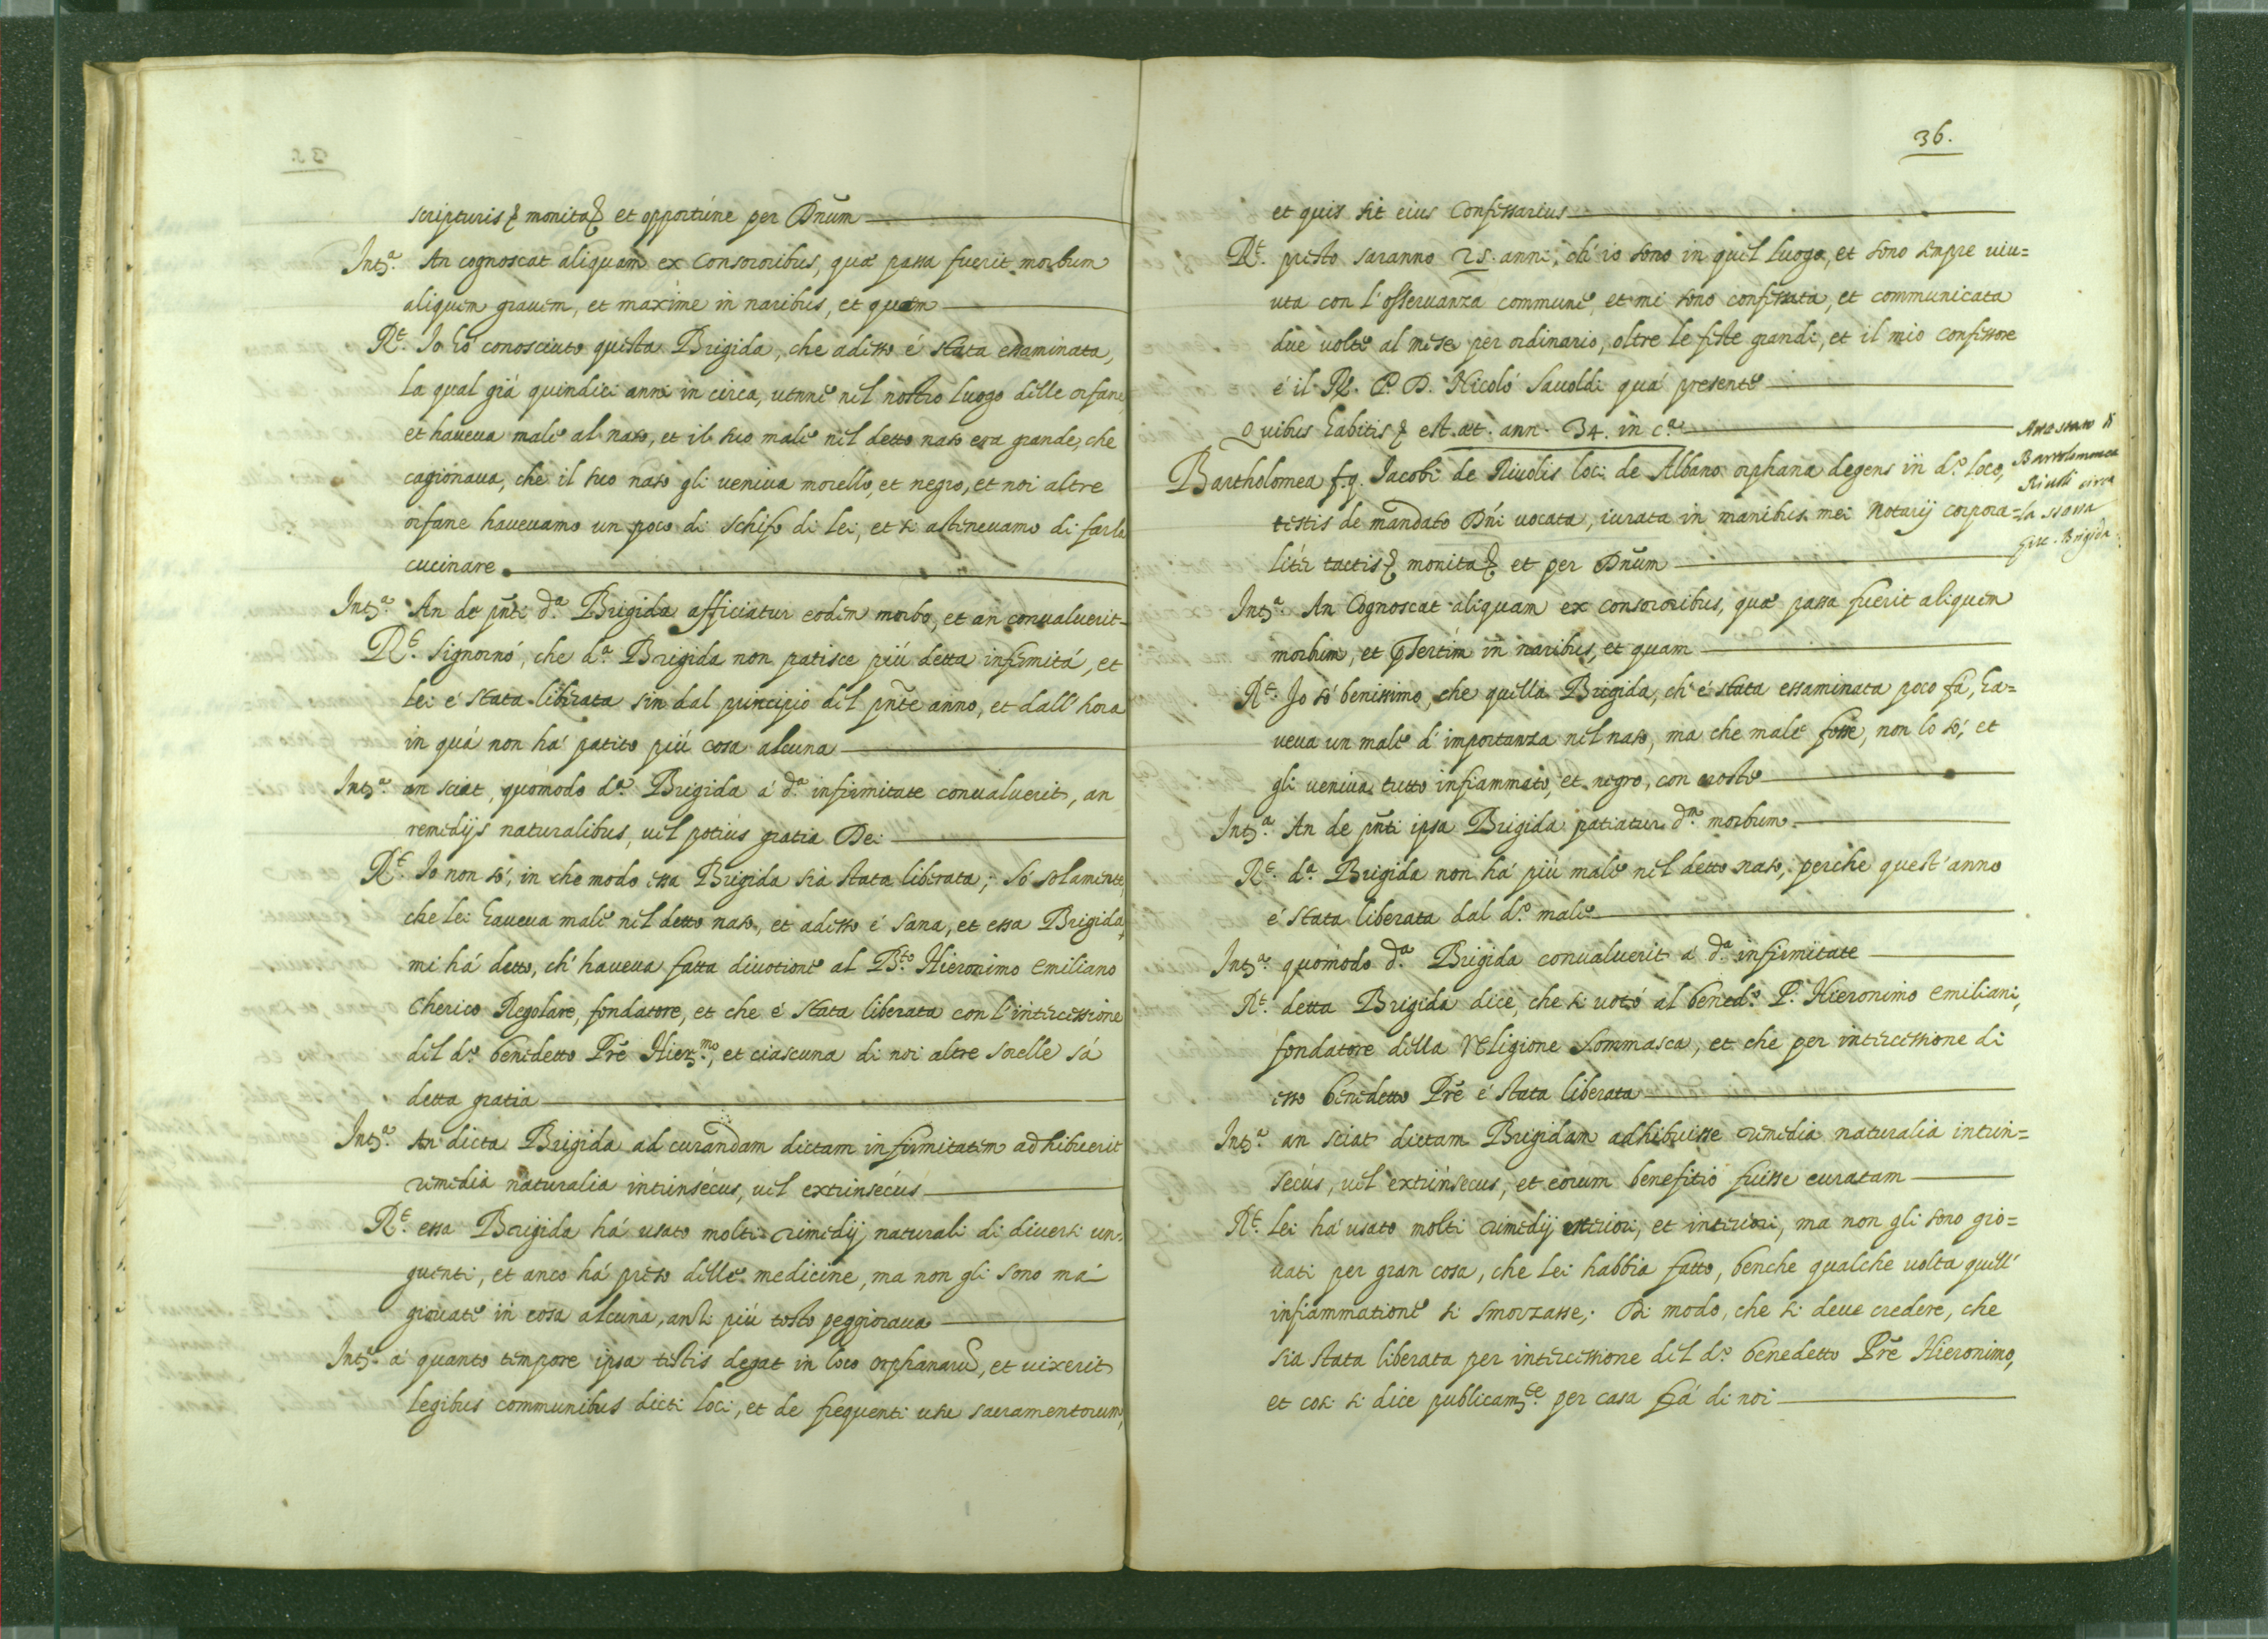 scripturis & monita & et opportúne per Dnũm
Intª. An cognoscat aliquam ex Consororibus, quæ passa fuerit morbum
aliquem grauem, et maxime in naribus, et quam
Rᵗ. Io hò conosciuto questa Brigida, che adesso é stata essaminata,
la qual giá quindici anni in circa, uenne nel nostro luogo delle orfane,
et haueua male al naso, et il suo male nel detto naso era grande, che
cagionaua, che il suo naso gli ueniua morello, et negro, et noi altre
orfane haueuamo un poco di schifo di lei, et si astineuamo di farla
cucinare
Intª. An de pñti dª. Brigida afficiatur eodem morbo, et an conualuerit
Rᵗ. Signornó, che dª. Brigida non patisce piú detta infirmitá, et
lei é stata liberata sin dal principio del pñte anno, et dall'hora
in quá non há patito piú cosa alcuna
Intª. an sciat, quómodo dª. Brigida á dª. infirmitate conualuerit, an
remedijs naturalibus, uel potiús gratia Dei
Rᵗ. Io non só, in che modo essa Brigida sia stata liberata; só solamente,
che lei haueua male nel detto naso, et adesso é sana, et essa Brigida
mi há detto, ch'haueua fatta diuotione al Bᵗᵒ. Hieronimo Emiliano
Cherico Regolare, fondatore, et che é stata liberata con l'intercessione
del dᵒ. benedetto Prẽ Hierᵐᵒ., et ciascuna di noi altre sorelle sá
detta gratia
Intª. An dicta Brigida ad curandam dictam infirmitatem adhibuerit
remedia naturalia intrinsécus, uel extrinsécus
Rᵗ. essa Brigida há usato molti rimedij naturali di diuersi un=
guenti, et anco há preso delle medicine, ma non gli sono má
giouate in cosa alcuna, anzi piú tosto peggioraua
Intª. á quanto tempore ipsa testis degat in loco orphanarũ, et uixerit
legibus communibus dicti loci, et de frequenti usu sacramentorum,
36.
et quis sit eius Confessarius
Rᵗ. presto saranno 25. anni, ch'io sono in quel luogo, et sono sempre uiu=
uta con l'osseruanza commune, et mi sono confessata, et communicata
due uolte al mese per ordinario, oltre le feste grandi, et il mio confessore
é il R. P. D. Nicoló Sauoldi quá presente
Quibus habitis & est æt. ann. 34. in cª.
Bartholomea f. q. Jacobi de Riuolis loci de Albano orphana degens in dᵒ. loco,
testis de mandato Dñi uocata, iurata in manibus mei Notarij corpora=
litér tactis & monita & et per Dnũm
Attestato di
Bartolommea
Riuoli circa
la stessa
Brigida
Intª. An Cognoscat aliquam ex consororibus, quæ passa fuerit aliquem
morbum, et p̱sertim in naribus, et quam
Rᵗ. Io só benissimo, che quella Brigida, ch'é stata essaminata poco fá, ha=
ueua un male d'importanza nel naso, ma che male fosse, non lo só, et
gli ueniua tutto infiammato, et negro, con croste
Intª. An de pñti ipsa Brigida patiatur dᵐ. morbum
Rᵗ. dª. Brigida non há piú male nel detto naso, perche quest'anno
é stata liberata dal dᵒ. male
Intª. quómodo dª. Brigida conualuerit á dª. infirmitate
Rᵗ. detta Brigida dice, che si uotó al benedᵒ. P. Hieronimo Emiliani,
fondatore della Religione Sommasca, et che per intercessione di
esso benedetto Prẽ é stata liberata
Intª. an sciat dictam Brigidam adhibuisse remedia naturalia intrin=
secús, uel extrinsecus, et eorum benefitio fuisse curatam
Rᵗ. lei há usato molti rimedij esteriori, et interiori, ma non gli sono gio=
uati per gran cosa, che lei habbia fatto, benche qualche uolta quell'
infiammatione si smorzasse; Di modo, che si deue credere, che
sia stata liberata per intercessione del dᵒ. benedetto Prẽ Hieronimo,
et cosi si dice publicamᵗᵉ. per casa frá di noi